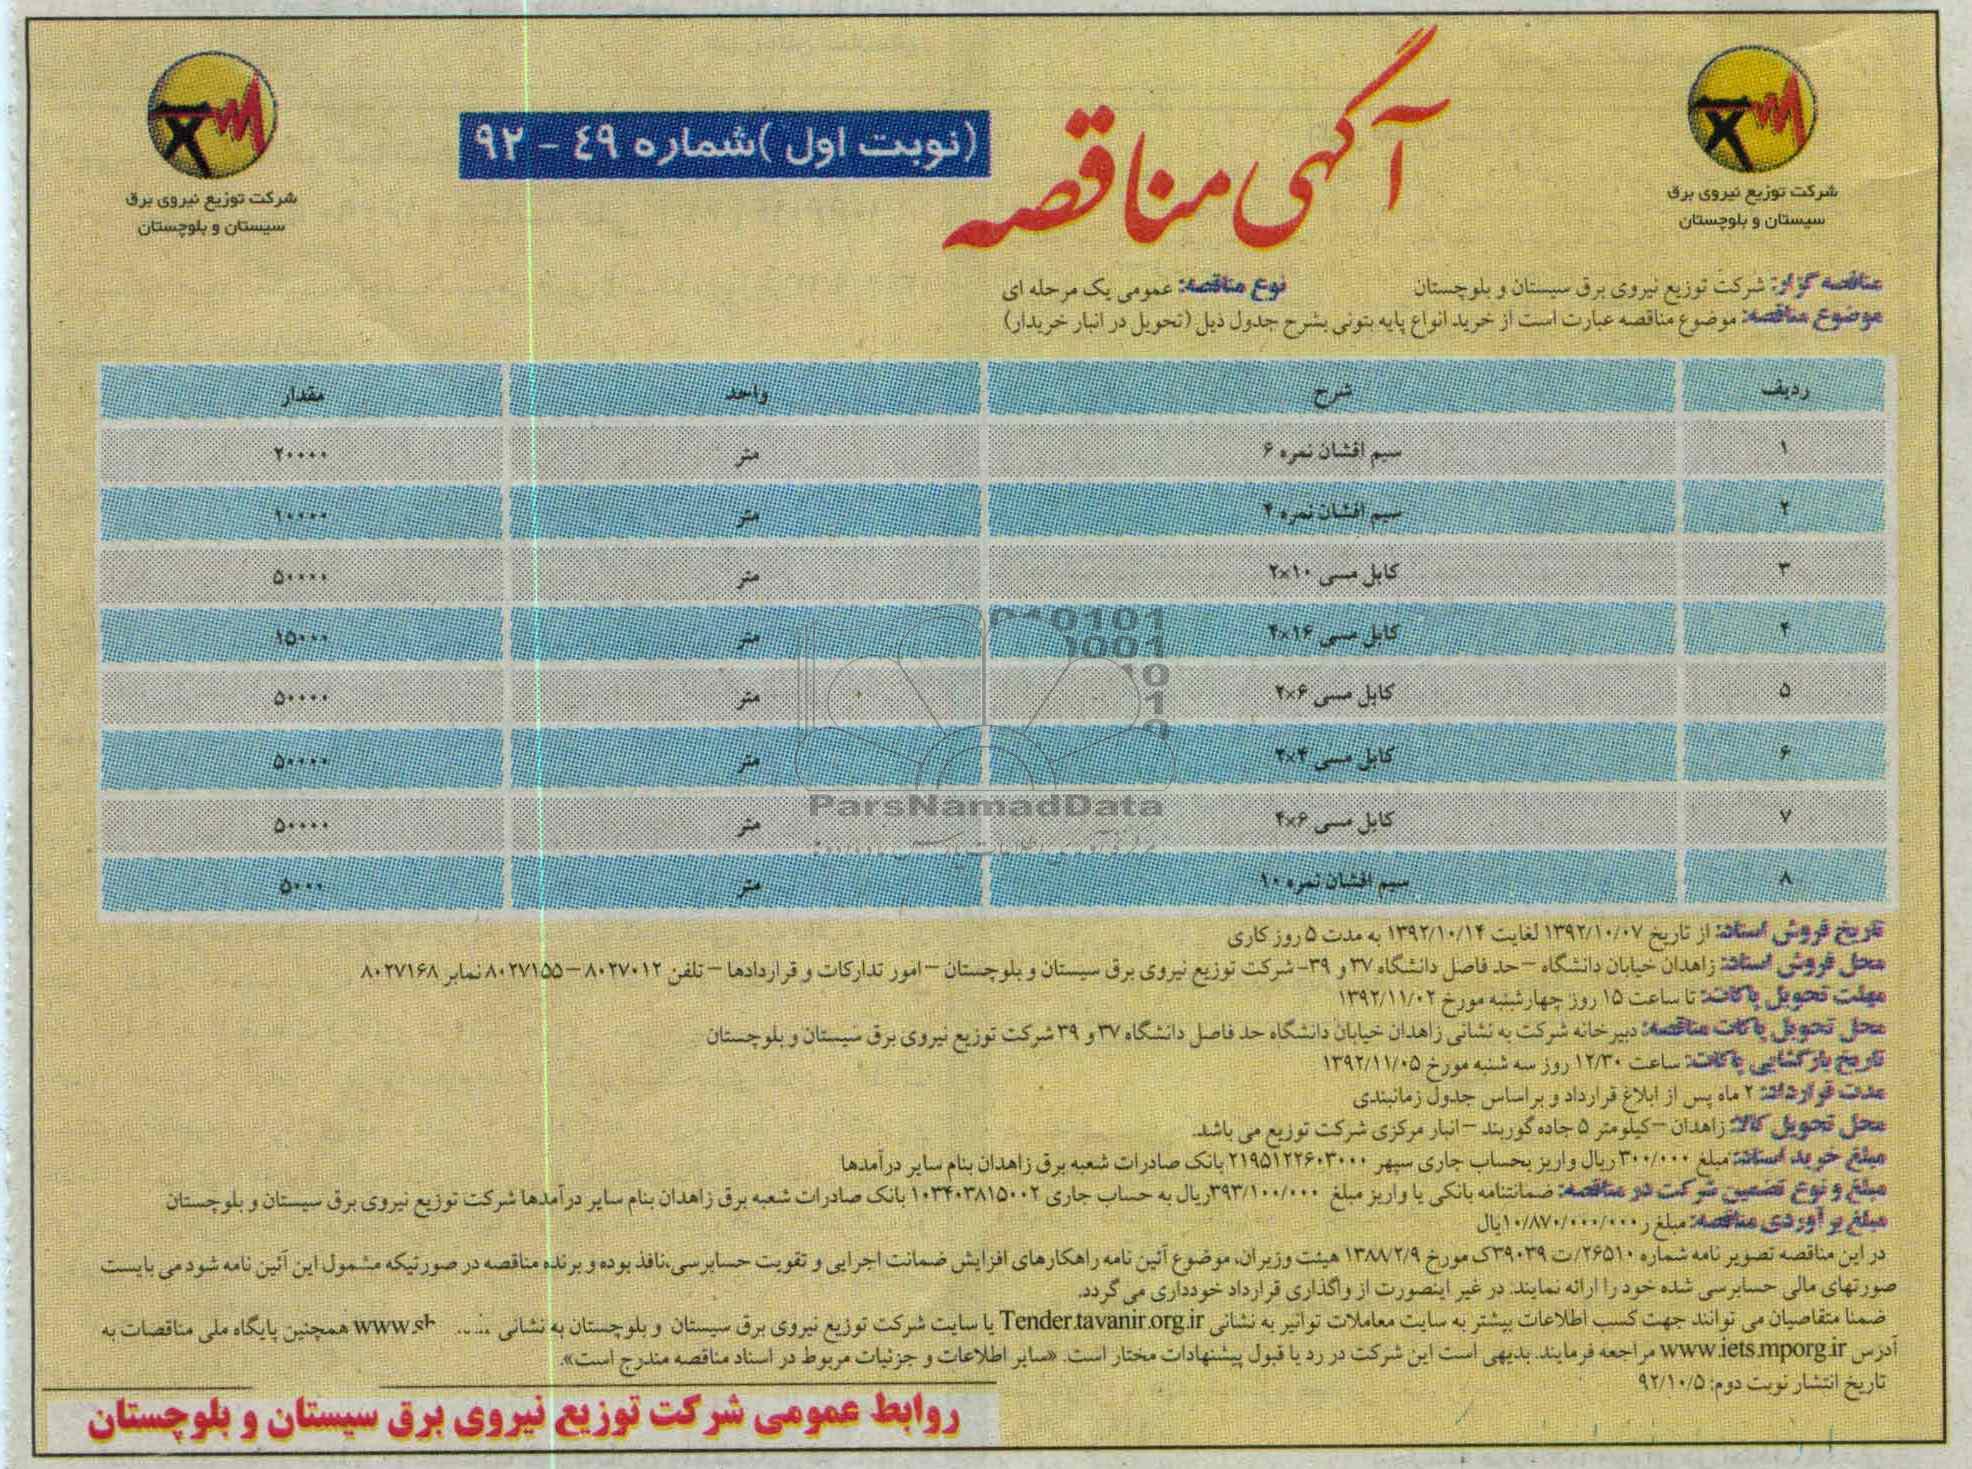 آگهی مناقصه
(نوبت اول) شماره ۴۹ - ۹۲
شرکت توزیع نیروی برق
سیستان و بلوچستان
شرکت توزیع نیروی برق
سیستان و بلوچستان
مناقصه گزار: شرکت توزیع نیروی برق سیستان و بلوچستان نوع مناقصه: عمومی یک مرحله ای
موضوع مناقصه: موضوع مناقصه عبارت است از خرید انواع پایه بتونی بشرح جدول ذیل (تحویل در انبار خریدار)
ردیف شرح واحد مقدار
۱ سیم افشان نمره ۶ متر ۲۰۰۰۰
۲ سیم افشان نمره ۴ متر ۱۰۰۰۰
۳ کابل مسی ۱۰×۲ متر ۵۰۰۰۰
۴ کابل مسی ۱۶×۴ متر ۱۵۰۰۰
۵ کابل مسی ۶×۲ متر ۵۰۰۰۰
۶ کابل مسی ۴×۲ متر ۵۰۰۰۰
۷ کابل مسی ۶×۴ متر ۵۰۰۰۰
۸ سیم افشان نمره ۱۰ متر ۵۰۰۰
ParsNamadData
تاریخ فروش اسناد: از تاریخ ۱۳۹۲/۱۰/۰۷ لغایت ۱۳۹۲/۱۰/۱۴ به مدت ۵ روز کاری
محل فروش اسناد: زاهدان خیابان دانشگاه – حد فاصل دانشگاه ۳۷ و ۳۹- شرکت توزیع نیروی برق سیستان و بلوچستان – امور تدارکات و قراردادها – تلفن ۸۰۲۷۰۱۲ – ۸۰۲۷۱۵۵ نمابر ۸۰۲۷۱۶۸
مهلت تحویل پاکات: تا ساعت ۱۵ روز چهارشنبه مورخ ۱۳۹۲/۱۱/۰۲
محل تحویل پاکات مناقصه: دبیرخانه شرکت به نشانی زاهدان خیابان دانشگاه حد فاصل دانشگاه ۳۷ و ۳۹ شرکت توزیع نیروی برق سیستان و بلوچستان
تاریخ بازگشایی پاکات: ساعت ۱۲/۳۰ روز سه شنبه مورخ ۱۳۹۲/۱۱/۰۵
مدت قرارداد: ۲ ماه پس از ابلاغ قرارداد و براساس جدول زمانبندی
محل تحویل کالا: زاهدان – کیلومتر ۵ جاده گوربند – انبار مرکزی شرکت توزیع می باشد.
مبلغ خرید اسناد: مبلغ ۳۰۰/۰۰۰ ریال واریز بحساب جاری سپهر ۲۱۹۵۱۲۲۶۰۳۰۰۰ بانک صادرات شعبه برق زاهدان بنام سایر درآمدها
مبلغ و نوع تضمین شرکت در مناقصه: ضمانتنامه بانکی یا واریز مبلغ ۳۹۳/۱۰۰/۰۰۰ ریال به حساب جاری ۱۰۳۴۰۳۸۱۵۰۰۲ بانک صادرات شعبه برق زاهدان بنام سایر درآمدها شرکت توزیع نیروی برق سیستان و بلوچستان
مبلغ برآوردی مناقصه: مبلغ ر ۱۰/۸۷۰/۰۰۰/۰۰۰ یال
در این مناقصه تصویر نامه شماره ۲۶۵۱۰/ت ۳۹۰۳۹ک مورخ ۱۳۸۸/۲/۹ هیئت وزیران، موضوع آئین نامه راهکارهای افزایش ضمانت اجرایی و تقویت حسابرسی، نافذ بوده و برنده مناقصه در صورتیکه مشمول این آئین نامه شود می بایست
صورتهای مالی حسابرسی شده خود را ارائه نمایند. در غیر اینصورت از واگذاری قرارداد خودداری می گردد.
ضمنا متقاضیان می توانند جهت کسب اطلاعات بیشتر به سایت معاملات توانیر به نشانی Tender.tavanir.org.ir یا سایت شرکت توزیع نیروی برق سیستان و بلوچستان به نشانی همچنین پایگاه ملی مناقصات به
آدرس www.iets.mporg.ir مراجعه فرمایند. بدیهی است این شرکت در رد یا قبول پیشنهادات مختار است. «سایر اطلاعات و جزئیات مربوط در اسناد مناقصه مندرج است».
تاریخ انتشار نوبت دوم: ۹۲/۱۰/۵
روابط عمومی شرکت توزیع نیروی برق سیستان و بلوچستان